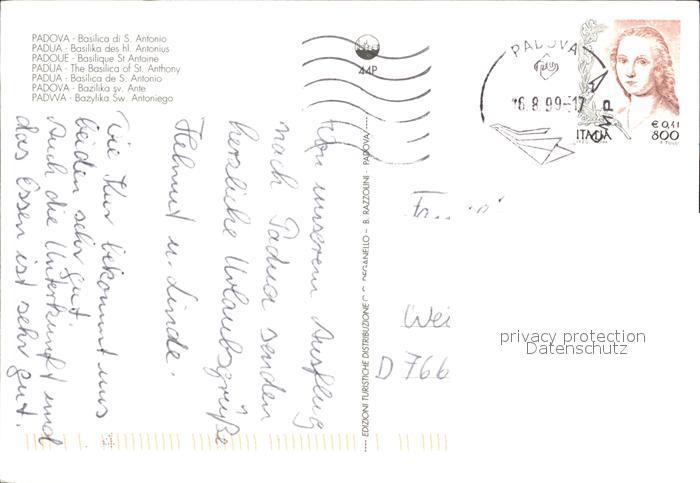 PADOVA - Basilica di S. Antonio
PADUA - Basilika des hl. Antonius
PADOUE - Basilique St Antoine
PADUA - The Basilica of St. Anthony
PADUA - Basilica de S. Antonio
PADOVA - Bazilika sv. Ante
PADWA - Bazylika Sw. Antoniego
44P
PADOVA
16.8.99-17
CMP
€ 0,41
ITALIA 800
Von unserem Ausflug
nach Padua senden
herzliche Urlaubsgrüße
Helmut u. Linde.
Die Kur bekommt uns
beiden sehr gut.
Auch die Unterkunft und
das Essen ist sehr gut.
EDIZIONI TURISTICHE DISTRIBUZIONE DEGANELLO - B. RAZZOLINI - PADOVA
Wei
D 766
privacy protection
Datenschutz